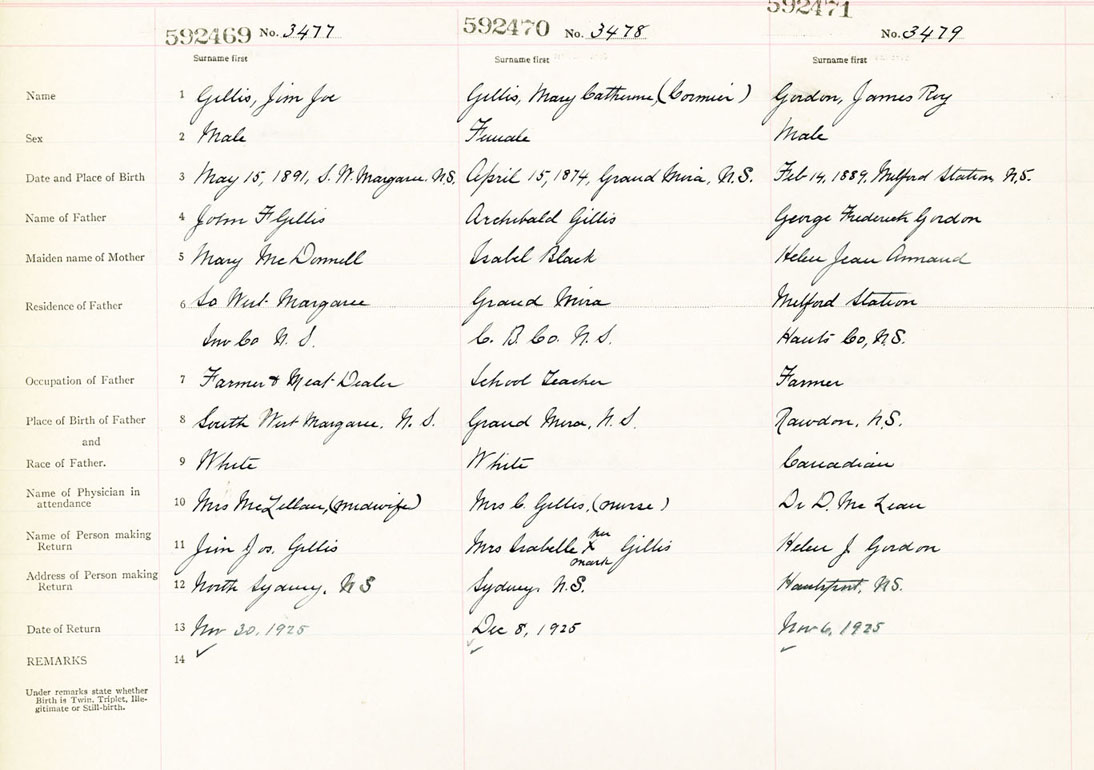 592469 No. 3477 592470 No. 3478 592471 No. 3479
Surname first Surname first Surname first
Name 1 Gillis, Jim Joe Gillis, Mary Catherine, (Cormier) Gordon, James Roy
Sex 2 Male Female Male
Date and Place of Birth 3 May 15, 1891, S. W. Margaree. N.S. April 15, 1874, Grand Mira, N.S. Feb 14, 1889, Milford Station N.S.
Name of Father 4 John F Gillis Archibald Gillis George Frederick Gordon
Maiden name of Mother 5 Mary McDonnell Isabel Black Helen Jean Armand
Residence of Father 6 So West Margaree Grand Mira Milford Station
Inv Co N. S. C. B. Co. N. S. Hants Co, N.S.
Occupation of Father 7 Farmer & Meat Dealer School Teacher Farmer
Place of Birth of Father 8 South West Margaree. N. S. Grand Mira, N. S. Rawdon, N.S.
and
Race of Father. 9 White White Canadian
Name of Physician in
attendance 10 Mrs McLellan, (midwife) Mrs C. Gillis, (nurse) Dr D. McLean
Name of Person making
Return 11 Jim Jos. Gillis Mrs Isabelle her X mark Gillis Helen J Gordon
Address of Person making
Return 12 North Sydney, N S Sydney, N.S. Hantsport, N.S.
Date of Return 13 Nov 30, 1925 Dec 8, 1925 Nov 6, 1925
REMARKS 14
Under remarks state whether
Birth is Twin, Triplet, Ille-
gitimate or Still-birth.